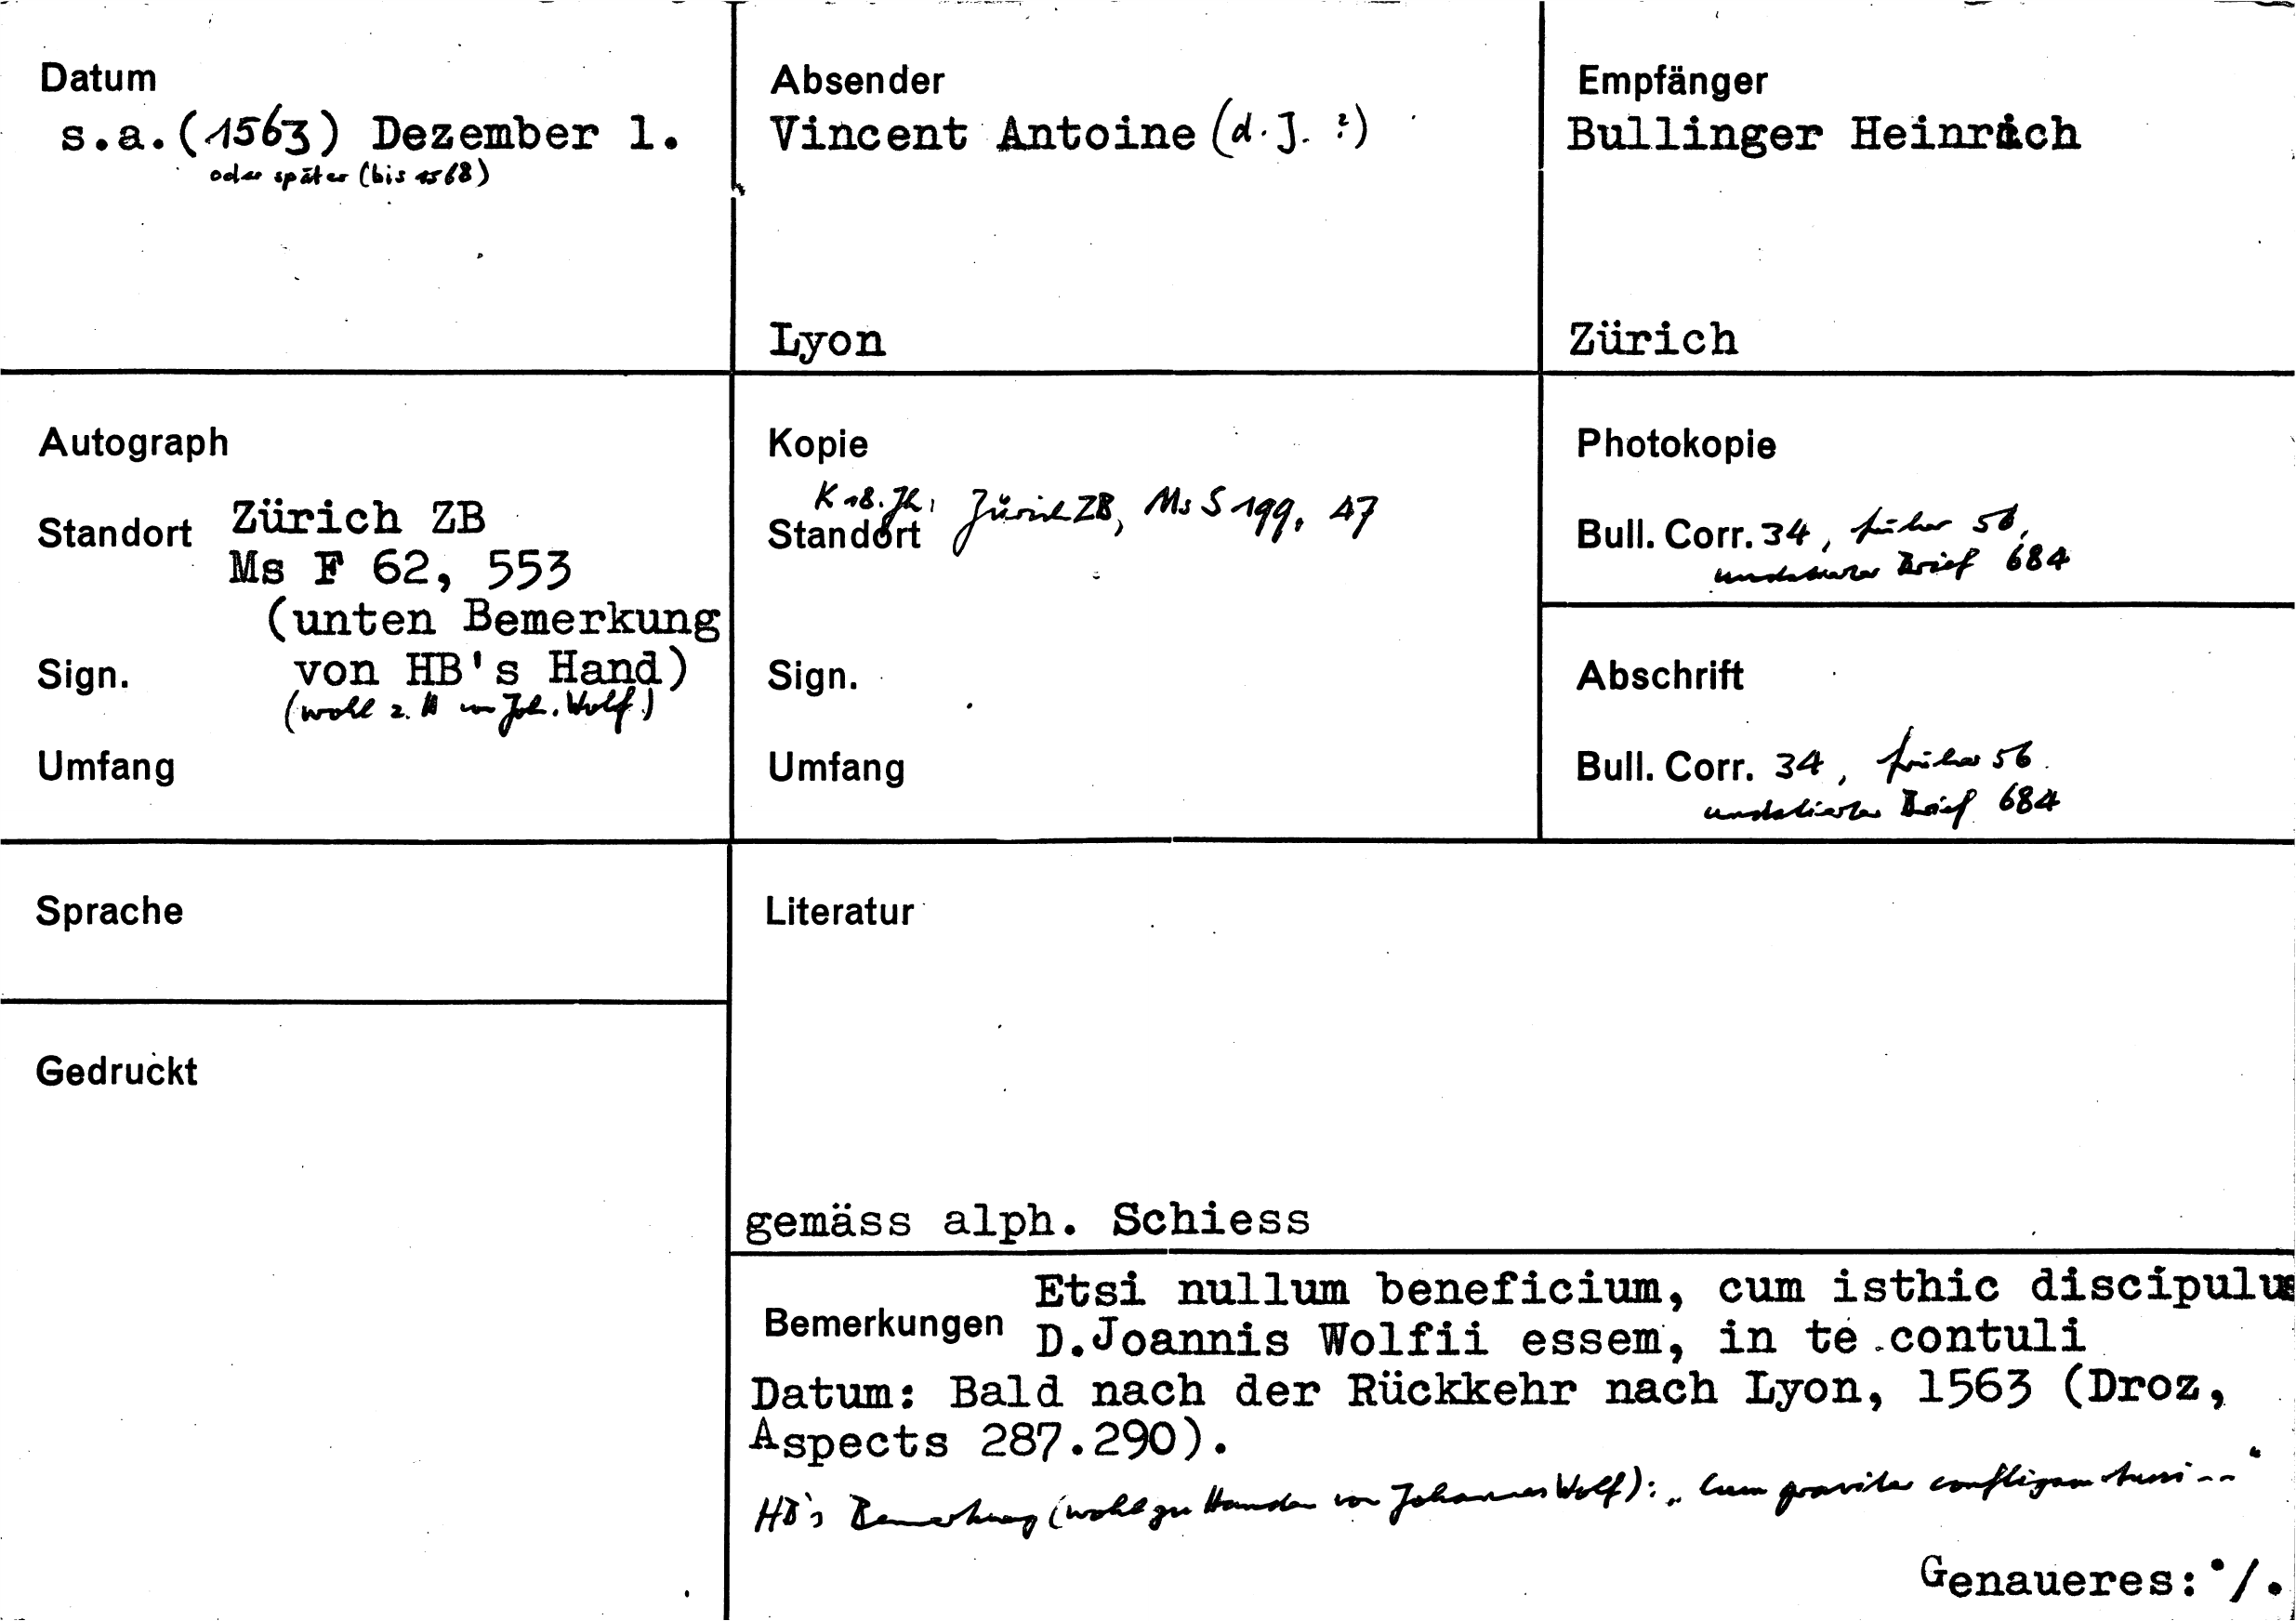 Datum
s.a. (1563) Dezember 1.
oder später (bis 1568)
Absender
Vincent Antoine (d. J. ?)
Lyon
Empfänger
Bullinger Heinrich
Zürich
Autograph
Standort Zürich ZB
Ms F 62, 553
(unten Bemerkung
Sign. von HB's Hand)
(wohl z. H von Joh. Wolf.)
Umfang
Kopie
K 18. Jh.
Standort Zürich ZB, Ms S 199, 47
Sign.
Umfang
Photokopie
Bull. Corr. 34, früher 56,
undatierter Brief 684
Abschrift
Bull. Corr. 34, früher 56.
undatierter Brief 684
Sprache
Gedruckt
Literatur
gemäss alph. Schiess
Bemerkungen Etsi nullum beneficium, cum isthic discipulus
D.Joannis Wolfii essem, in te contuli
Datum: Bald nach der Rückkehr nach Lyon, 1563 (Droz,
Aspects 287.290).
HB's Bemerkung (wohl zu Handen von Johannes Wolf): „Cum graviter confligam tussi --"
Genaueres: ·/.